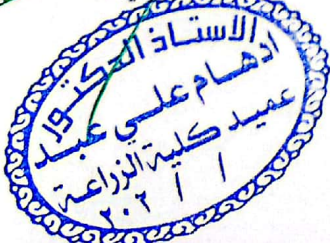 الاستاذ الدكتور
ادهام علي عبد
عميد كلية الزراعة
/ / ٢٠٢